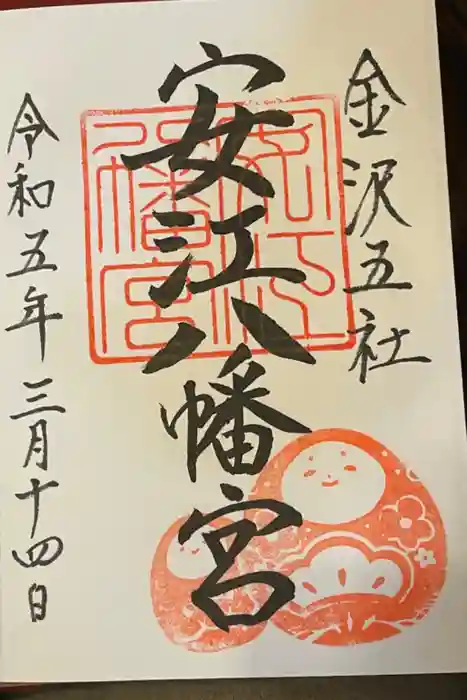 金沢五社
安江八幡宮
令和五年三月十四日
安江八幡宮